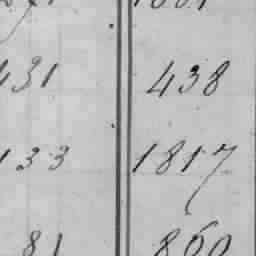 431 438
133 1817
81 860